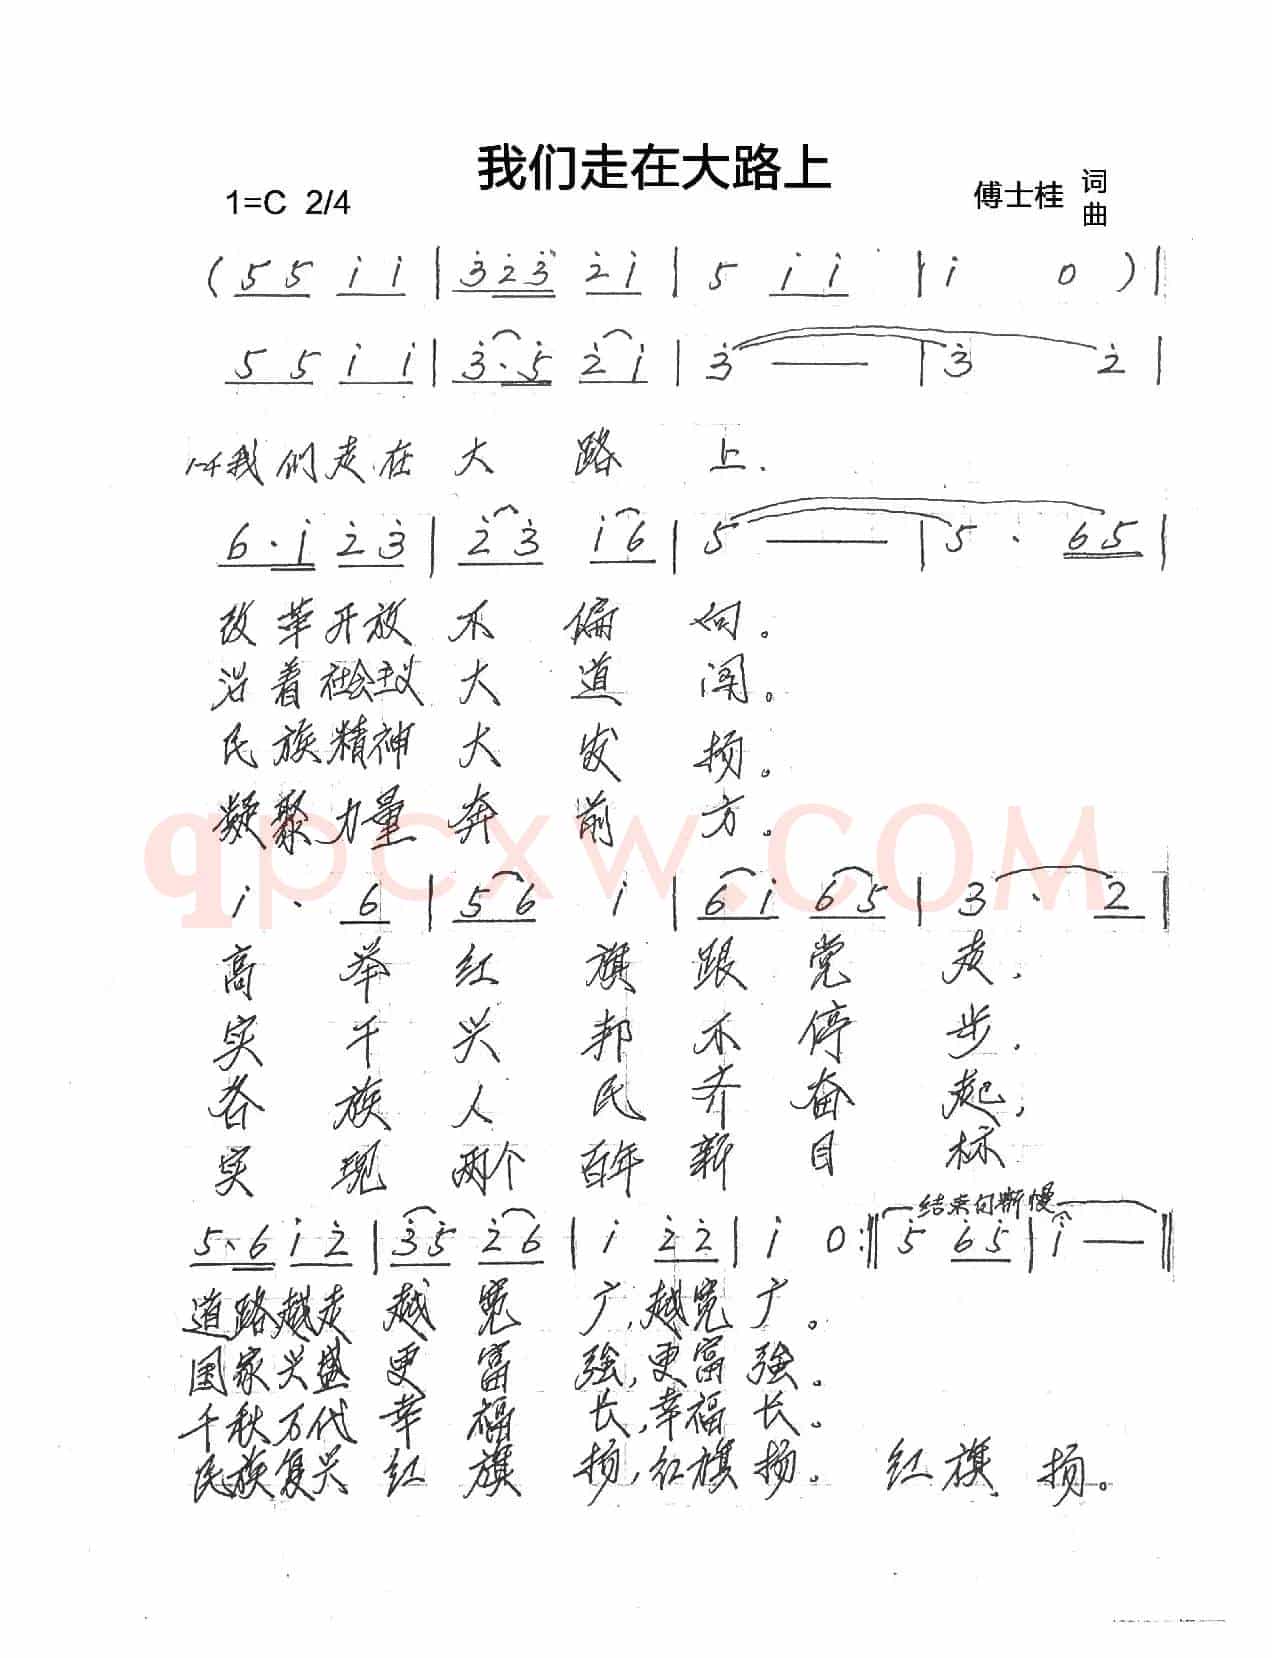 我们走在大路上
1=C 2/4
傅士桂 词
曲
( 5 5 i i | 3 2 3 2 i | 5 i i | i 0 ) |
5 5 i i | 3 · 5 2 i | 3 — | 3 2 |
1-4我们走在大路上.
6 · i 2 3 | 2 3 i 6 | 5 — | 5 · 6 5 |
改革开放不偏向。
沿着社会主义大道闯。
民族精神大发扬。
凝聚力量奔前方。
qpcxw.COM
i · 6 | 5 6 i | 6 i 6 5 | 3 · 2 |
高举红旗跟党走,
实干兴邦不停步,
各族人民齐奋起,
实现两个百年新目标
结束句渐慢
5 · 6 i 2 | 3 5 2 6 | i 2 2 | i 0 :‖ 5 6 5 | i — ‖
道路越走越宽广,越宽广。
国家兴盛更富强,更富强。
千秋万代幸福长,幸福长。
民族复兴红旗扬,红旗扬。红旗扬。